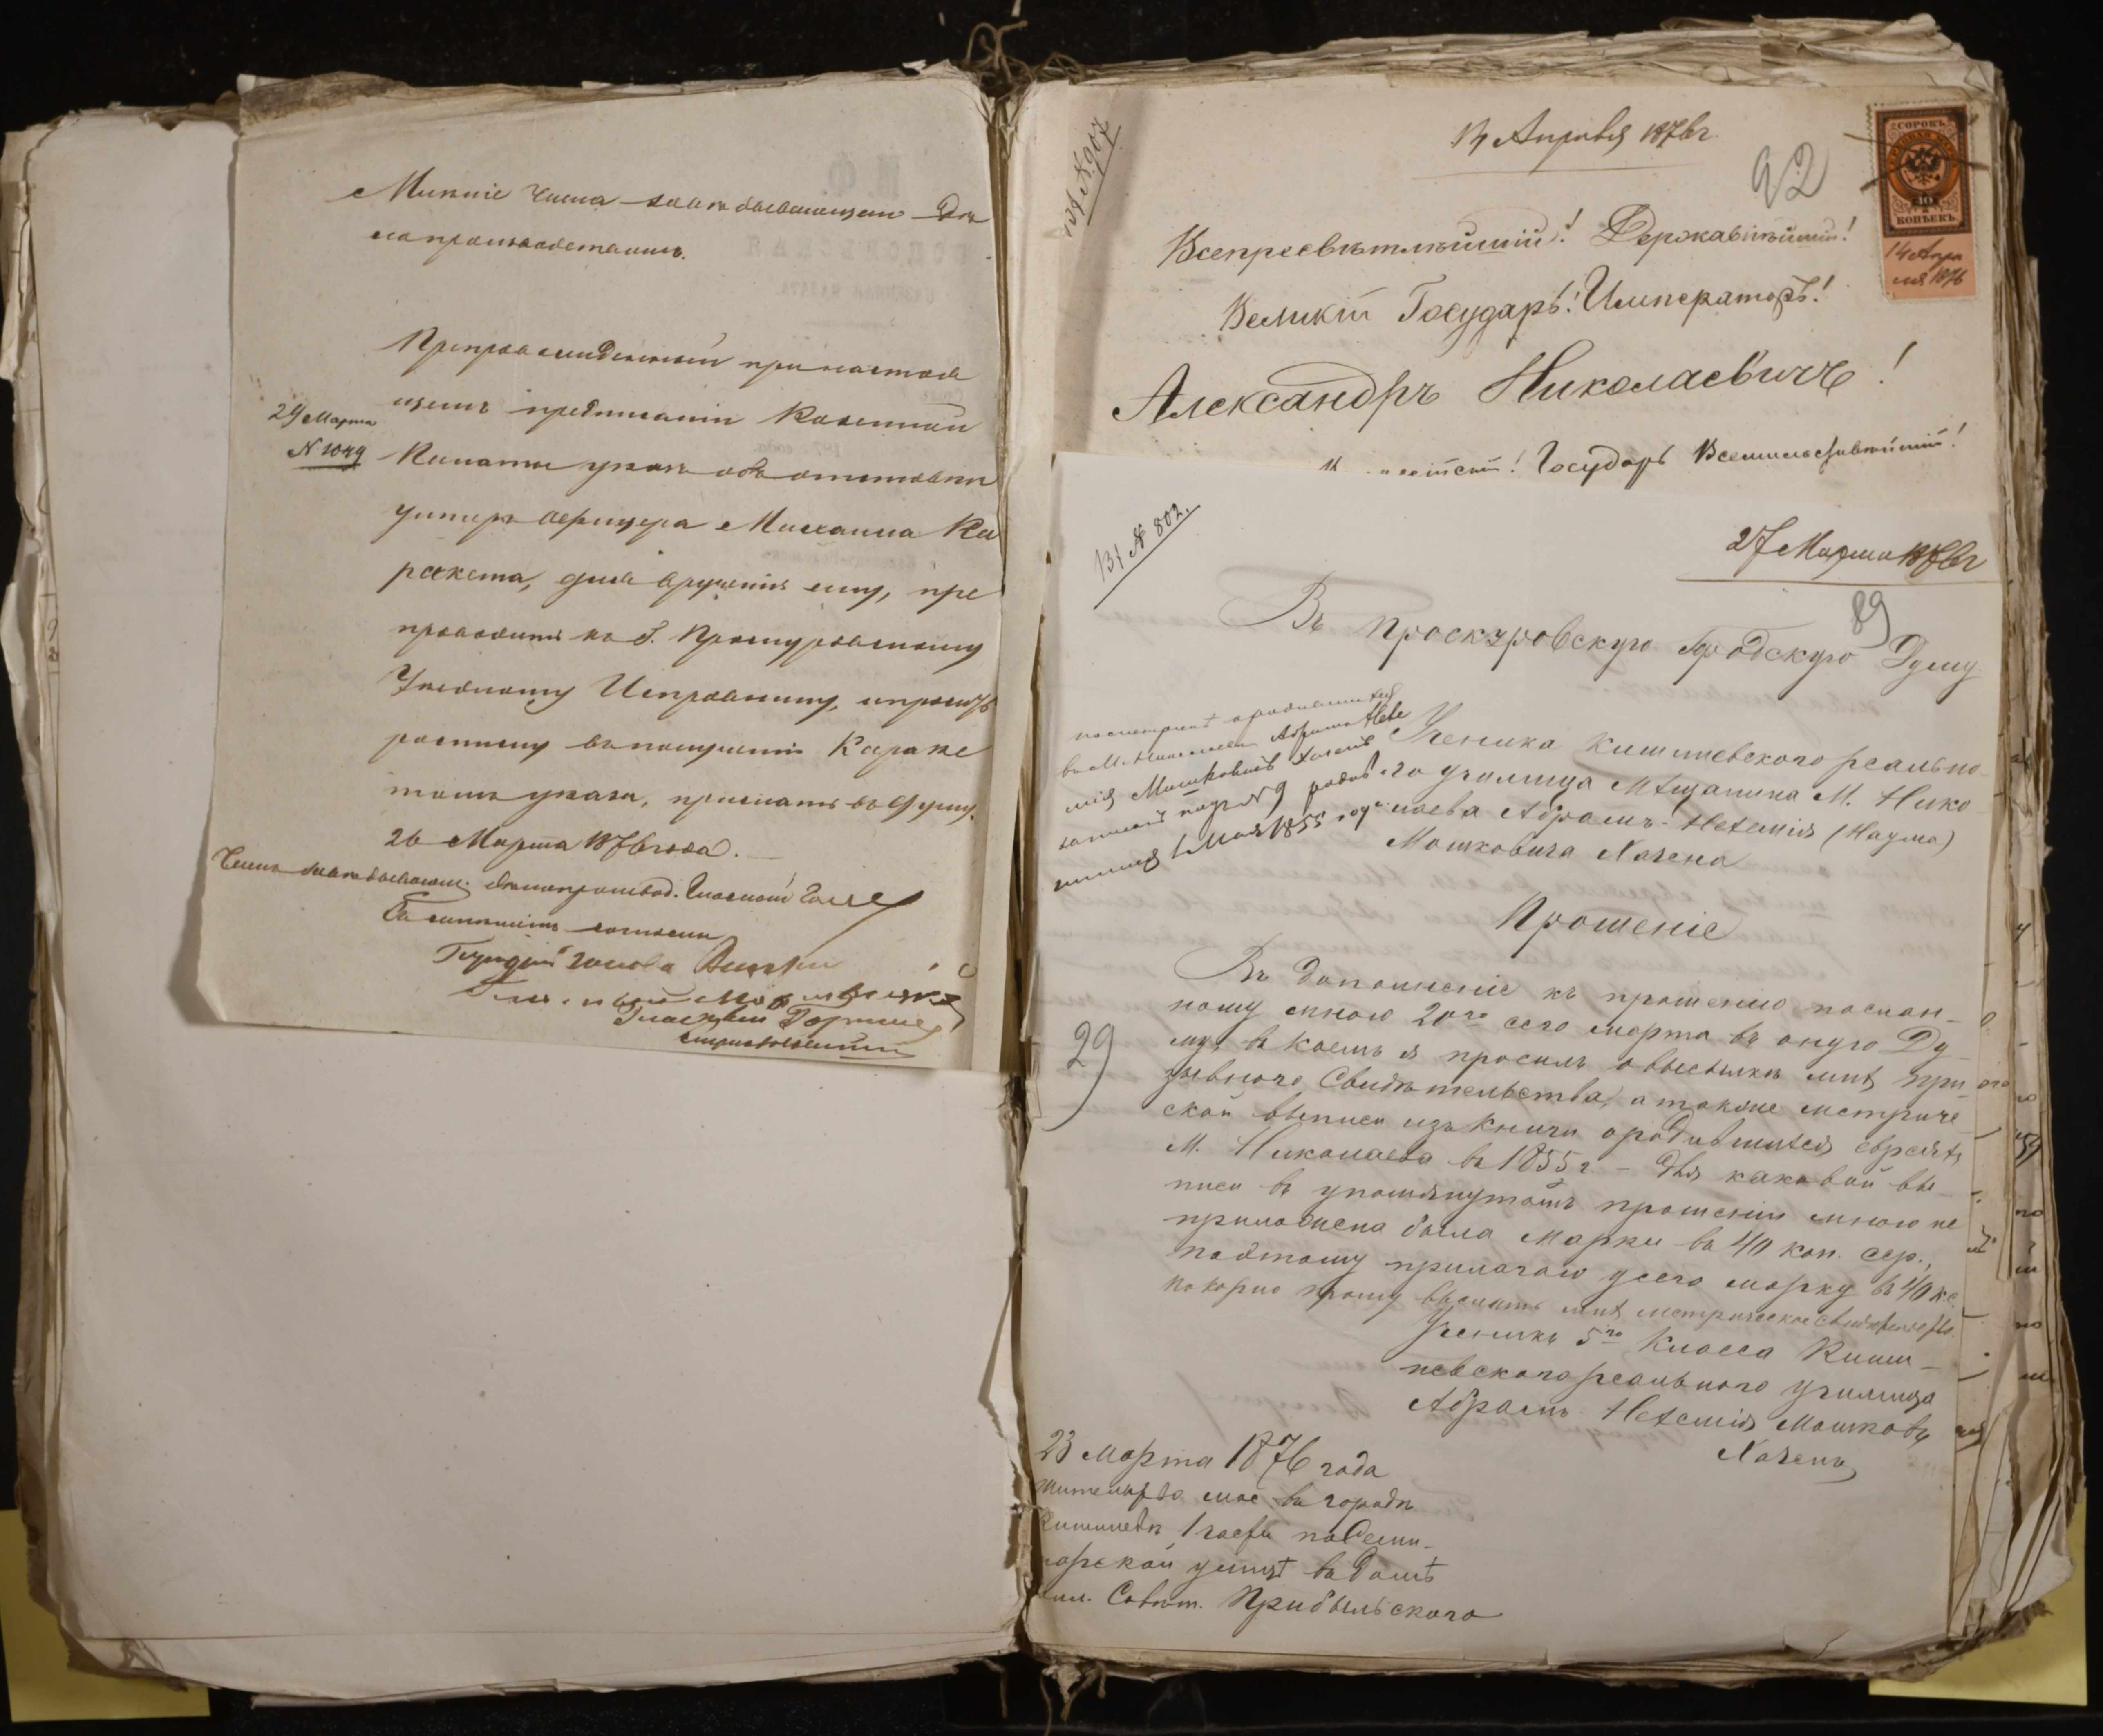 Мнѣніе Члена завѣдывающаго Дѣ
лопроизводствомъ.
Препровожденный при настоя
щемъ предписаніи Казенной
29 Марта
№ 1049
Палаты указъ объ отставкѣ
унтеръ офицера Михаила Ка
ракета, для врученія ему, пре
проводить къ Г. Проскуровскому
Уѣздному Исправнику, и просить
росписку въ полученіи Караке
томъ указа, прислать въ Думу.
26 Марта 1876 года.
Членъ завѣдывающ. дѣлопроизвод. Гласный
Съ мнѣніемъ согласны
Городской голова
Гласный
вх № 907
14 Апрѣля 1876 г.
92
СОРОКЪ
40
КОПѢЕКЪ
14 Апрѣ
ля 1876
Всепресвѣтлѣйшій! Державнѣйшій!
Великій Государь! Императоръ!
Александръ Николаевичъ!
Государь Всемилостивѣйшій!
вх № 802.
27 Марта 1876 г
89
Въ Проскуровскую Городскую Думу
Ученика Кишиневскаго реально-
го училища Мѣщанина М. Нико
лаева Абрамъ-Нехемія (Наума)
Мошковича Хачена
по метрикѣ о родившихся
въ М. Николаевѣ Абрамъ Нехе
мія Мошковичъ Хаченъ
записанъ подъ № 9 родив
шимся 1 Мая 1855 года
Прошеніе
Въ дополненіе къ прошенію послан-
ному мною 20го сего марта въ оную Ду
му, въ коемъ я просилъ о высылкѣ мнѣ при
зывнаго Свидѣтельства, а также метриче
ской выписи изъ книги о родившихся евреяхъ
М. Николаева въ 1855 г. – для каковой вы
писи въ упомянутомъ прошеніи мною не
приложена была марки въ 40 коп. сер.,
поэтому прилагаю у сего марку въ 40 к.с.
покорно прошу выслать мнѣ метрическое свидѣтельство.
29
Ученикъ 5го Класса Киши-
невскаго реальнаго училища
Абрамъ Нехемія Мошковъ
Хаченъ
23 Марта 1876 года
Жительство мое въ городѣ
Кишиневѣ 1 части по Семи-
нарской улицѣ въ домѣ
Совѣт. Прибыльскаго